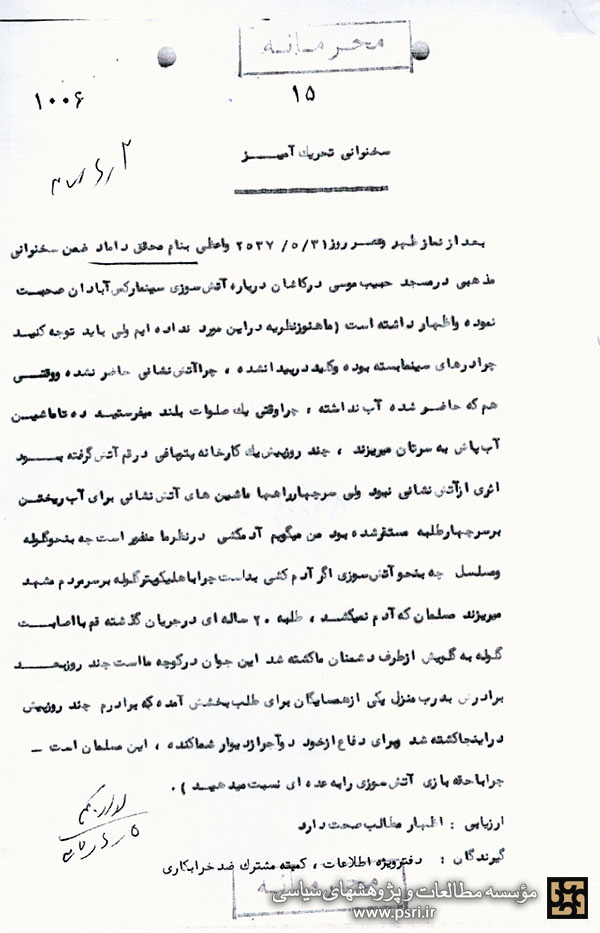 محرمانه
۱۵
۱۰۰۶
سخنرانی تحریک آمیــز
بعد از نماز ظهر و عصر روز ۳۱/ ۵/ ۲۵۳۷ واعظی بنام محقق داماد ضمن سخنرانی
مذهبی در مسجد حبیب موسی در کاشان درباره آتش سوزی سینما رکس آبادان صحبت
نموده و اظهار داشته است (ما هنوز نظریه در این مورد نداده ایم ولی باید توجه کنید
چرا درهای سینما بسته بوده و کلید در پیدا نشده ، چرا آتش نشانی حاضر نشده ووقتــی
هم که حاضر شده آب نداشته ، چرا وقتی یک صلوات بلند میفرستید ده تا ماشین
آب پاش به سرتان میریزند ، چند روز پیش یک کارخانه پتوبافی در قم آتش گرفته بــود
اثری از آتش نشانی نبود ولی سرچهارراهها ماشین های آتش نشانی برای آب ریختن
بر سر چهار طلبه مستقر شده بود من میگویم آدمکشی در نظر ما منفور است چه بنحو گلوله
و مسلسل چه بنحو آتش سوزی اگر آدم کشی بد است چرا با هلیکوپتر گلوله بر سر مردم مشهد
میریزند مسلمان که آدم نمیکشد ، طلبه ۲۰ ساله ای در جریان گذشته قم با اصابت
گلوله به گلویش از طرف دشمنان ما کشته شد این جوان در کوچه ما است چند روز بعــد
برادرش بدرب منزل یکی از همسایگان برای طلب بخشش آمده که برادرم چند روز پیش
در اینجا کشته شد و برای دفاع از خود دو آجر از دیوار شما کنده ، این مسلمان است ــ
چرا با حقه بازی آتش سوزی را به عده ای نسبت میدهید ) .
ارزیابی : اظهار مطالب صحت دارد
گیرندگان : دفتر ویژه اطلاعات ، کمیته مشترک ضد خرابکاری
محرمانه
مؤسسه مطالعات و پژوهشهای سیاسی
www.psri.ir